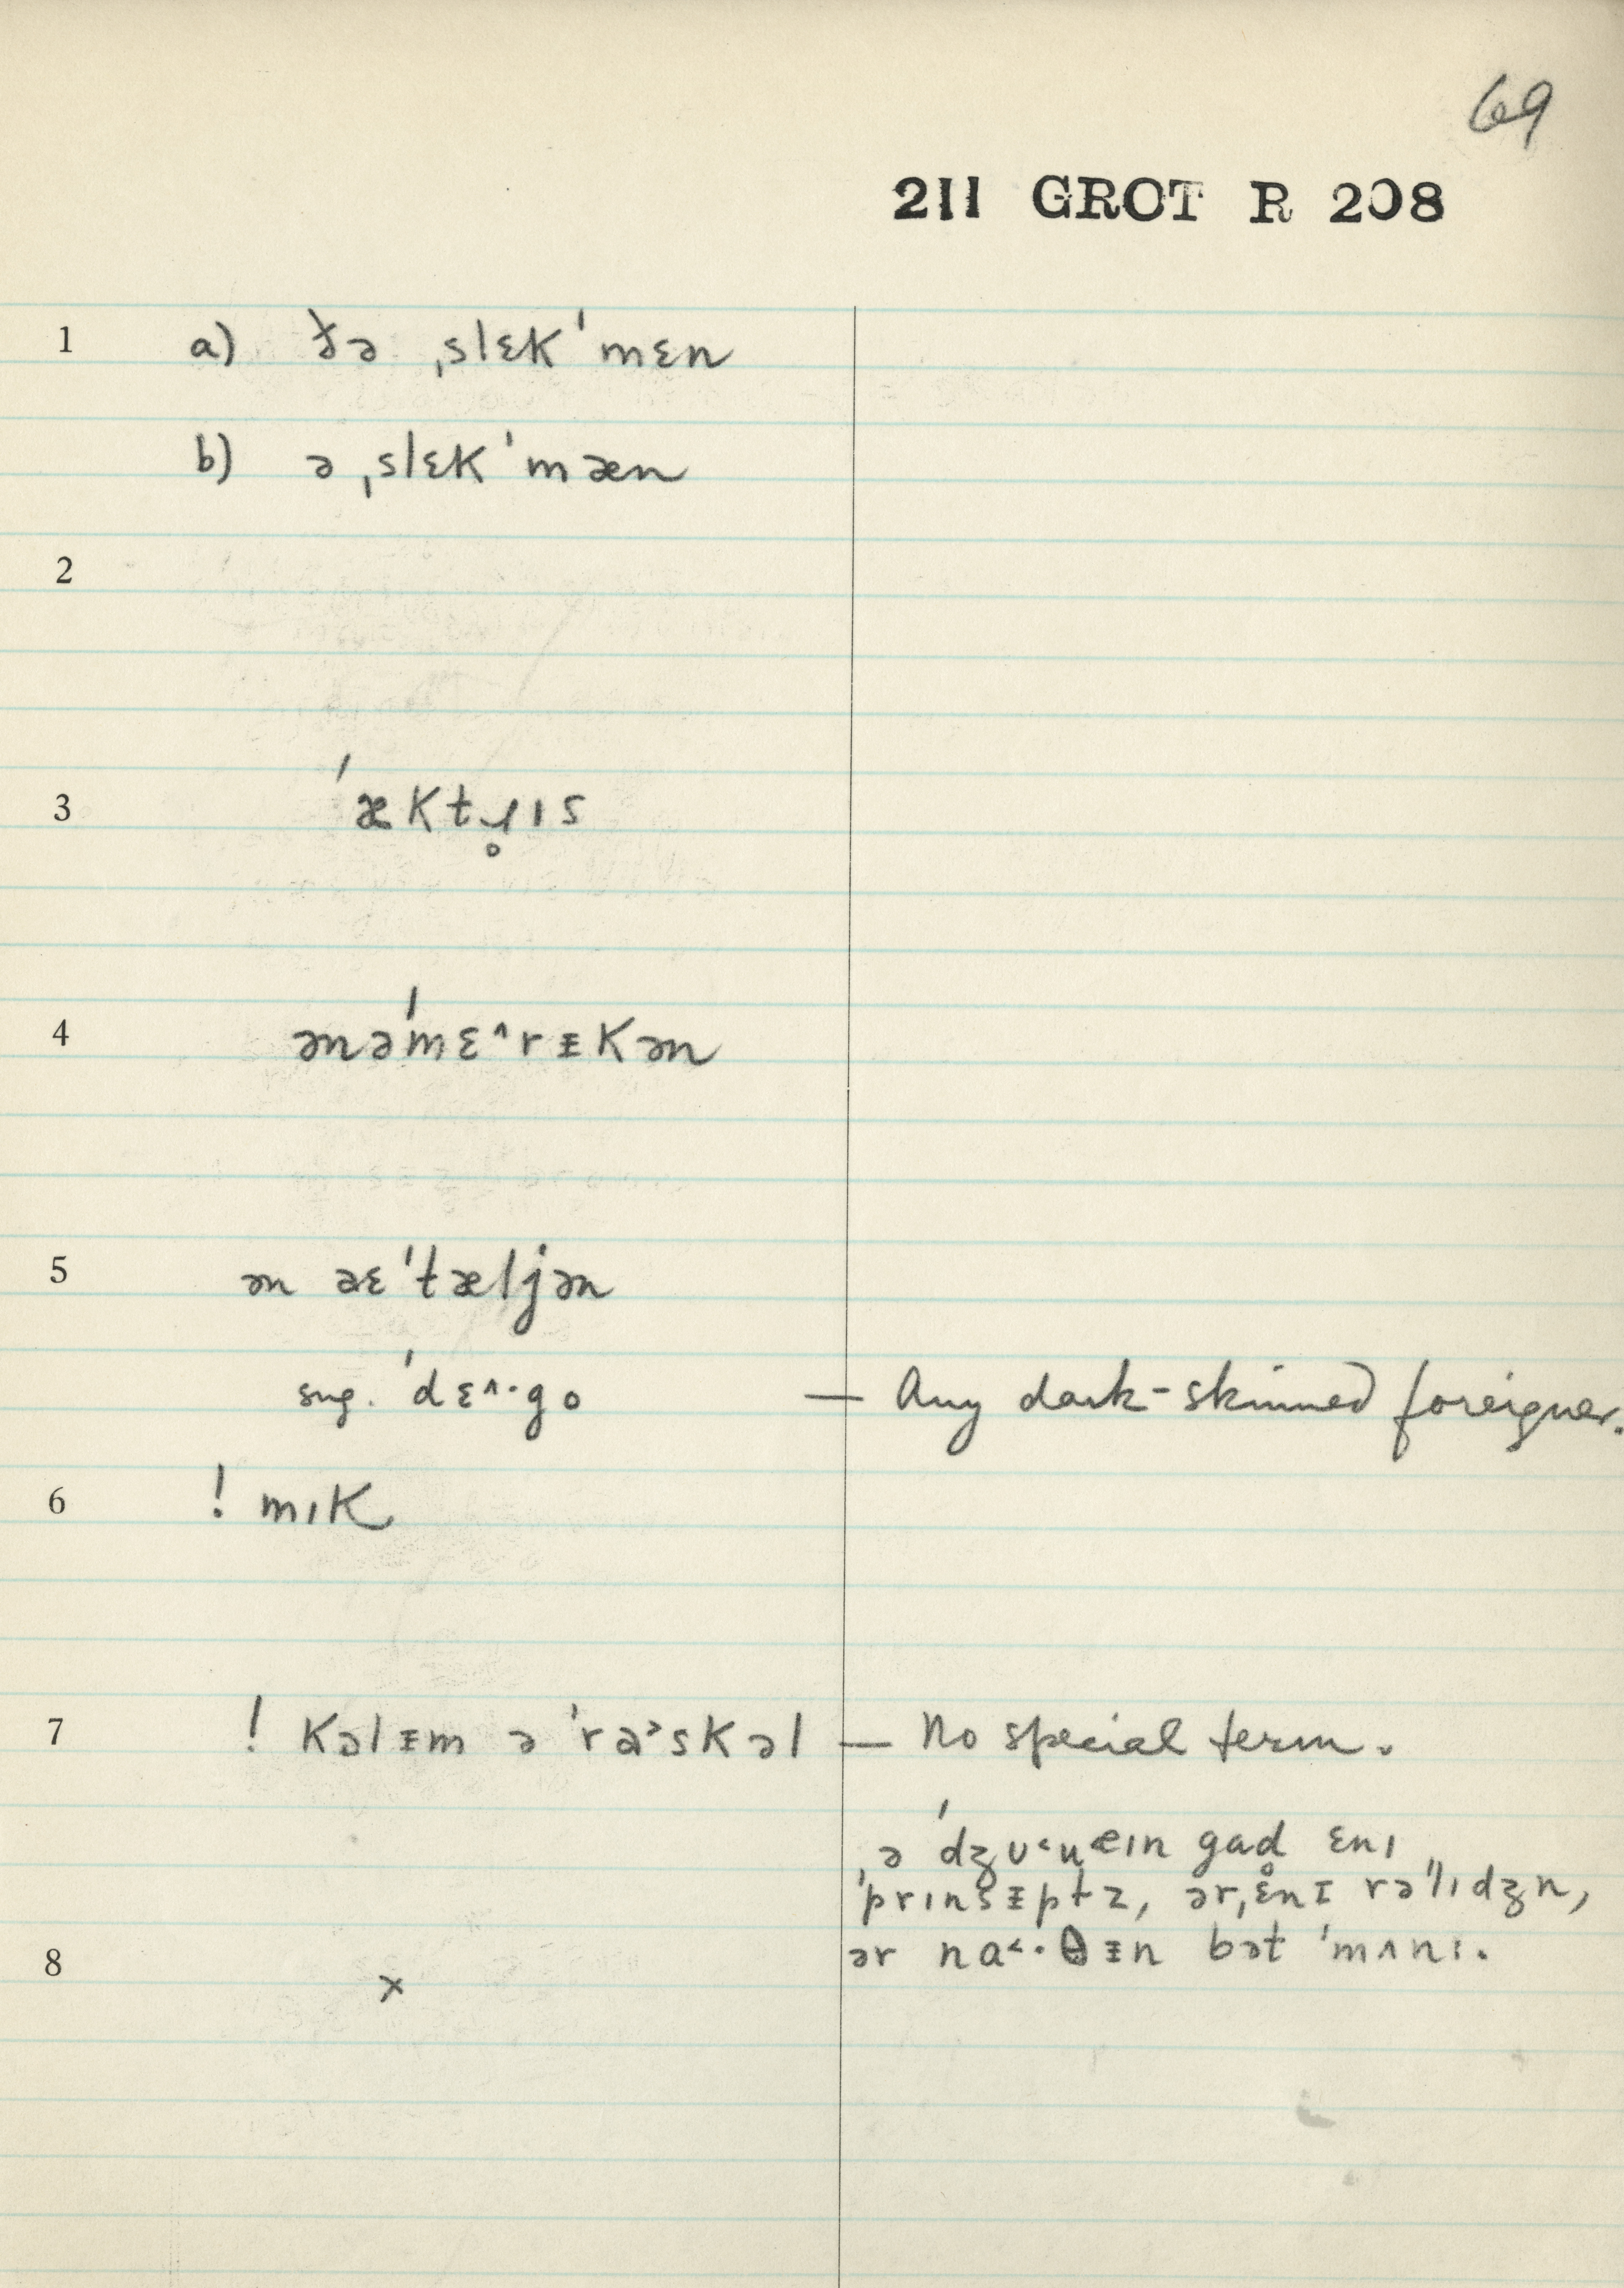 69
211 GROT R 208
1 a) ðə ˌslɛk ˈmɛn
b) ə ˌslɛk ˈmæn
2
3 ˈæktɹ̥ɪs
4 ənəˈmɛ^rᵻkən
5 ən aɛˈtæljən
sug. ˈdɛ^·go — Any dark-skinned foreigner.
6 ! mɪk
7 ! kəlᵻm ə ˈra˃skəl — No special term.
ˌə ˈdʒʊ˂u gad ɛnɪ
ˈprɪnsᵻptz, ər ˌɛnɪ rəˈlɪdʒn,
8 ər na˂·θᵻn bət ˈmʌnɪ.
x